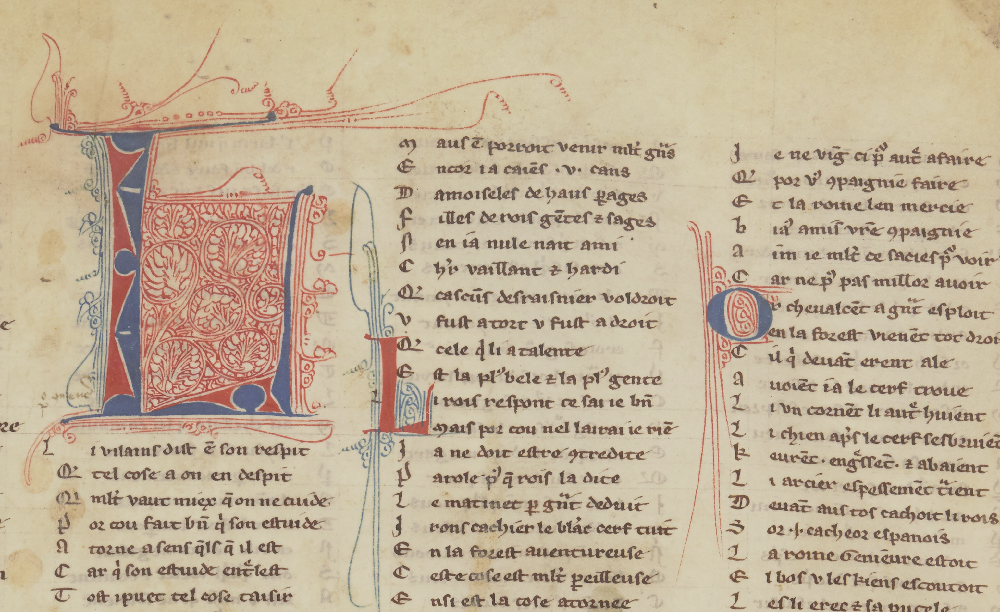 L
L i vilains dist ē son respit
Q tel cose a on en despit
Q mlt̄ vaut mieꝫ q̄ on ne cuide
P or cou fait bn̄ q̇ son estuide
A torne a sens q̄ls q̄ il est
C ar q̇ son estuide ent̄lest
T ost i puet tel cose taisir
M ais t̄ porroit venir mlt̄ gn̄s
E ncor ia caiēs .v. cans
D amoiseles de haus ꝑages
F illes de rois gētes ⁊ sages
N en ia nule nait ami
C hr̄ vaillant ⁊ hardi
Q cascūs desraisnier voldroit
V fust a tort v fust a droit
Q cele q̇ li atalente
E st la plꝰ bele ⁊ la plꝰ gente
Li rois respont ce sai ie bn̄
Mais por cou nel lairai ie riē
J a ne doit estre ꝯtredite
P arole pͦ q̄ rois la dite
L e matinet ꝑ gn̄t deduit
J rons cachier le blāc cerf tuit
E n la forest aventureuse
C este cose est mlt̄ ꝑeilleuse
E nsi est la cose atornee
J e ne viḡ ci pͦ aut̄ afaire
Q por vͦ ꝯpaignie faire
E t la roine len mercie
B iaꝰ amis vr̄e ꝯpaignie
A im ie mlt̄ de sacies pͦ voir
C ar ne pͦ pas millor avoir
Or chevalcēt a gn̄t esploit
en la forest vienēt tot droi
C il q̇ devāt erent ale
A voiēt ia le cerf trove
L i vn cornēt li aut̄ huient
L i chien ap̄s le cerf sesbruiē
K eurēt. enḡssēt. ⁊ abaient
L i arcier espessemēt t̄ient
D evāt aus tos cachoit li rois
S or .i. cacheor espanois
L a roine Genieure estoit
E l bos v les kiens escoutoit
L es li erec ⁊ sa pucele